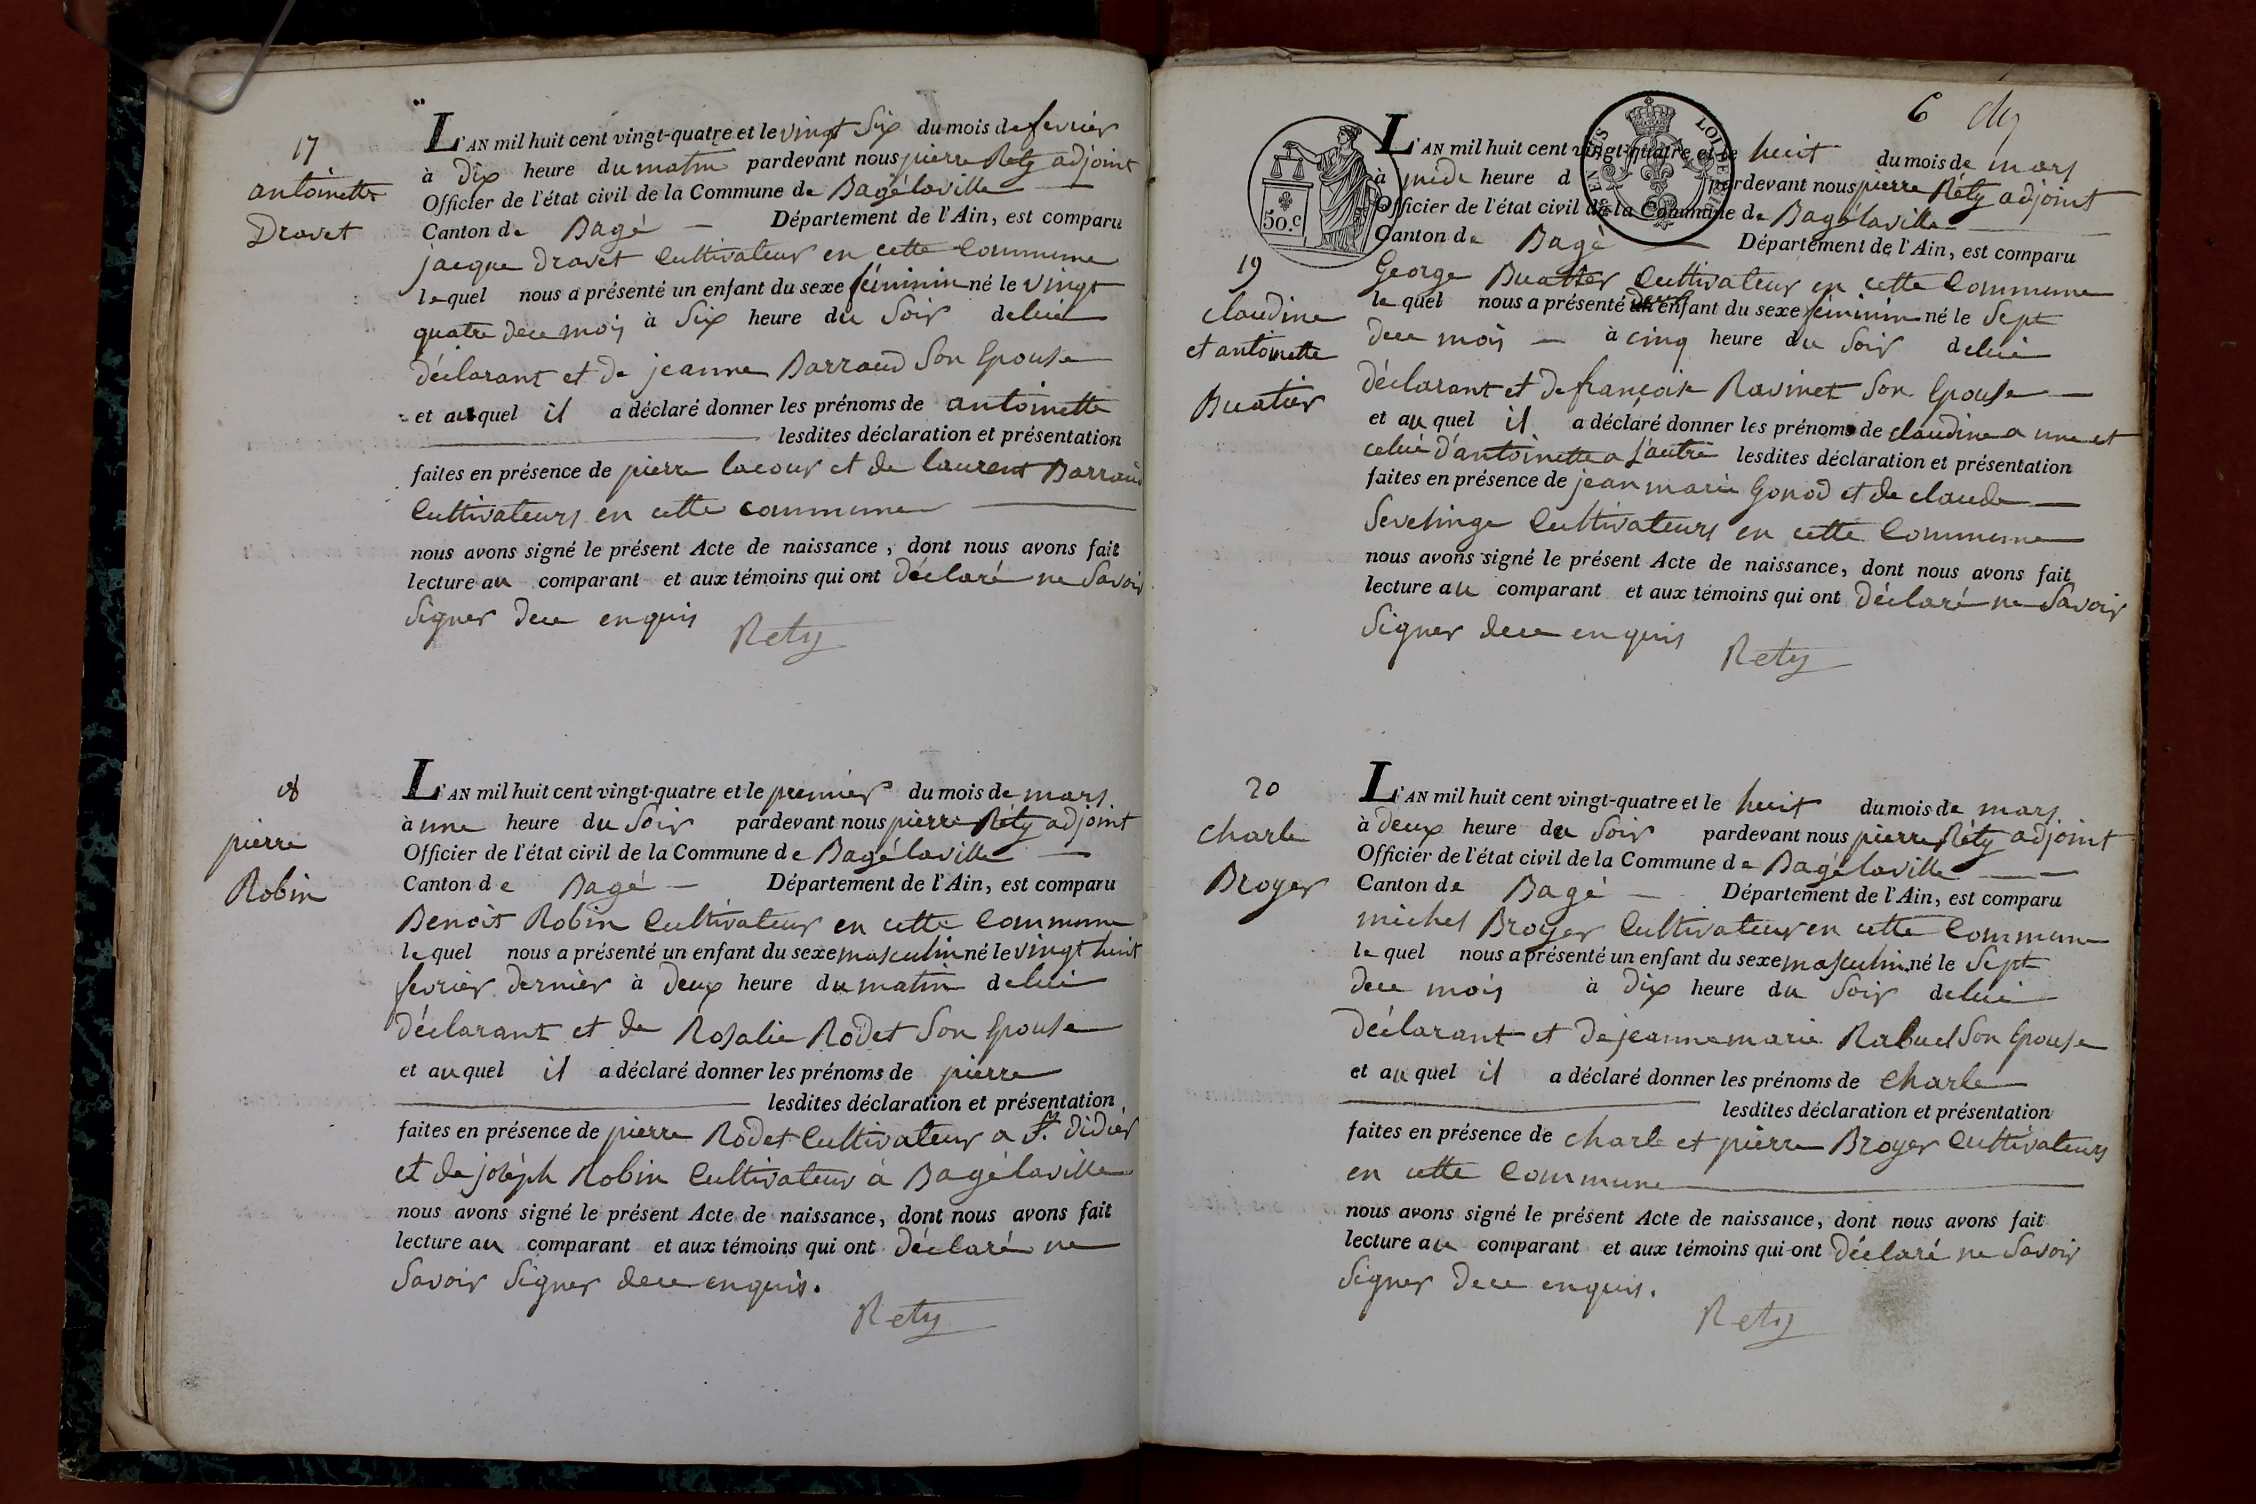 17
antoinette
Dravet
L'AN mil huit cent vingt-quatre et le vingt Six du mois de fevrier
à Dix heure du matin pardevant nous pierre Réty adjoint
Officier de l'état civil de la Commune de Bagélaville
Canton de Bagé Département de l'Ain, est comparu
jacque Dravet Cultivateur en cette Commune
lequel nous a présenté un enfant du sexe féminin né le vingt
quatre dece mois à Six heure du Soir delui
déclarant et de jeanne Barraud Son Epouse
et auquel il a déclaré donner les prénoms de antoinette
lesdites déclaration et présentation
faites en présence de pierre lacour et de laurent Barraud
Cultivateurs en cette commune
nous avons signé le présent Acte de naissance, dont nous avons fait
lecture au comparant et aux témoins qui ont déclaré ne Savoir
Signer dece enquis
Rety
18
pierre
Robin
L'AN mil huit cent vingt-quatre et le premier du mois de mars
à une heure du Soir pardevant nous pierre Réty adjoint
Officier de l'état civil de la Commune de Bagélaville
Canton de Bagé Département de l'Ain, est comparu
Benoit Robin Cultivateur en cette Commune
lequel nous a présenté un enfant du sexe masculin né le vingt huit
fevrier dernier à deux heure du matin delui
déclarant et de Rosalie Rodet Son Epouse
et auquel il a déclaré donner les prénoms de pierre
lesdites déclaration et présentation
faites en présence de pierre Rodet Cultivateur a St. didier
et de joséph Robin Cultivateur à Bagélaville
nous avons signé le présent Acte de naissance, dont nous avons fait
lecture au comparant et aux témoins qui ont déclaré ne
Savoir Signer dece enquis.
Rety
6
50.c
19
claudine
et antoinette
Buatier
L'AN mil huit cent vingt-quatre et le huit du mois de mars
à midi heure d pardevant nous pierre Réty adjoint
Officier de l'état civil de la Commune de Bagélaville
Canton de Bagé Département de l'Ain, est comparu
George Buatier Cultivateur en cette Commune
lequel nous a présenté deux enfant du sexe féminin né le Sept
dece mois à cinq heure du Soir delui
déclarant et de françoise Ravinet Son Epouse
et auquel il a déclaré donner les prénoms de claudine a une et
celui d'antoinette a l'autre lesdites déclaration et présentation
faites en présence de jean marie Gonod et de claude
Sevelinge Cultivateurs en cette Commune
nous avons signé le présent Acte de naissance, dont nous avons fait
lecture au comparant et aux témoins qui ont déclaré ne Savoir
Signer dece enquis
Rety
20
charle
Broyer
L'AN mil huit cent vingt-quatre et le huit du mois de mars
à deux heure du Soir pardevant nous pierre Réty adjoint
Officier de l'état civil de la Commune de Bagélaville
Canton de Bagé Département de l'Ain, est comparu
michel Broyer Cultivateur en cette Commune
lequel nous a présenté un enfant du sexe masculin né le Sept
dece mois à dix heure du Soir delui
déclarant et de jeanne marie Rabuel Son Epouse
et auquel il a déclaré donner les prénoms de Charle
lesdites déclaration et présentation
faites en présence de charle et pierre Broyer Cultivateurs
en cette Commune
nous avons signé le présent Acte de naissance, dont nous avons fait
lecture au comparant et aux témoins qui ont déclaré ne Savoir
Signer dece enquis.
Rety